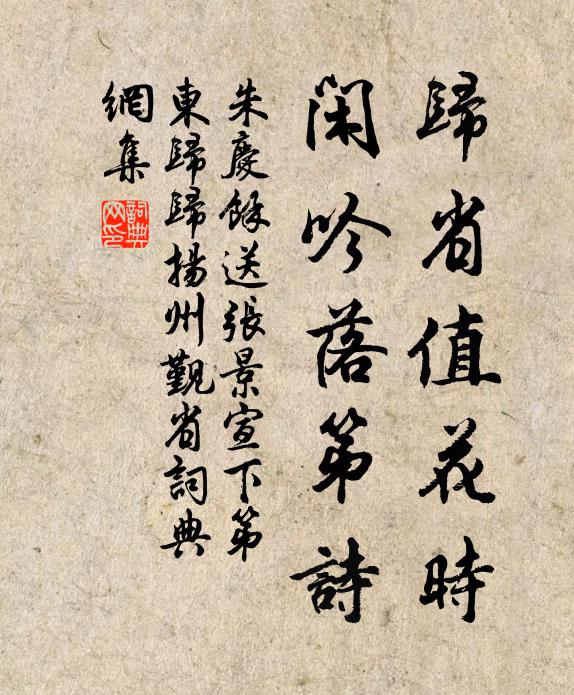 歸省值花時
閑吟落第詩
朱慶餘送張景宣下第
東歸歸揚州覲省詞典
網集
詞典網印